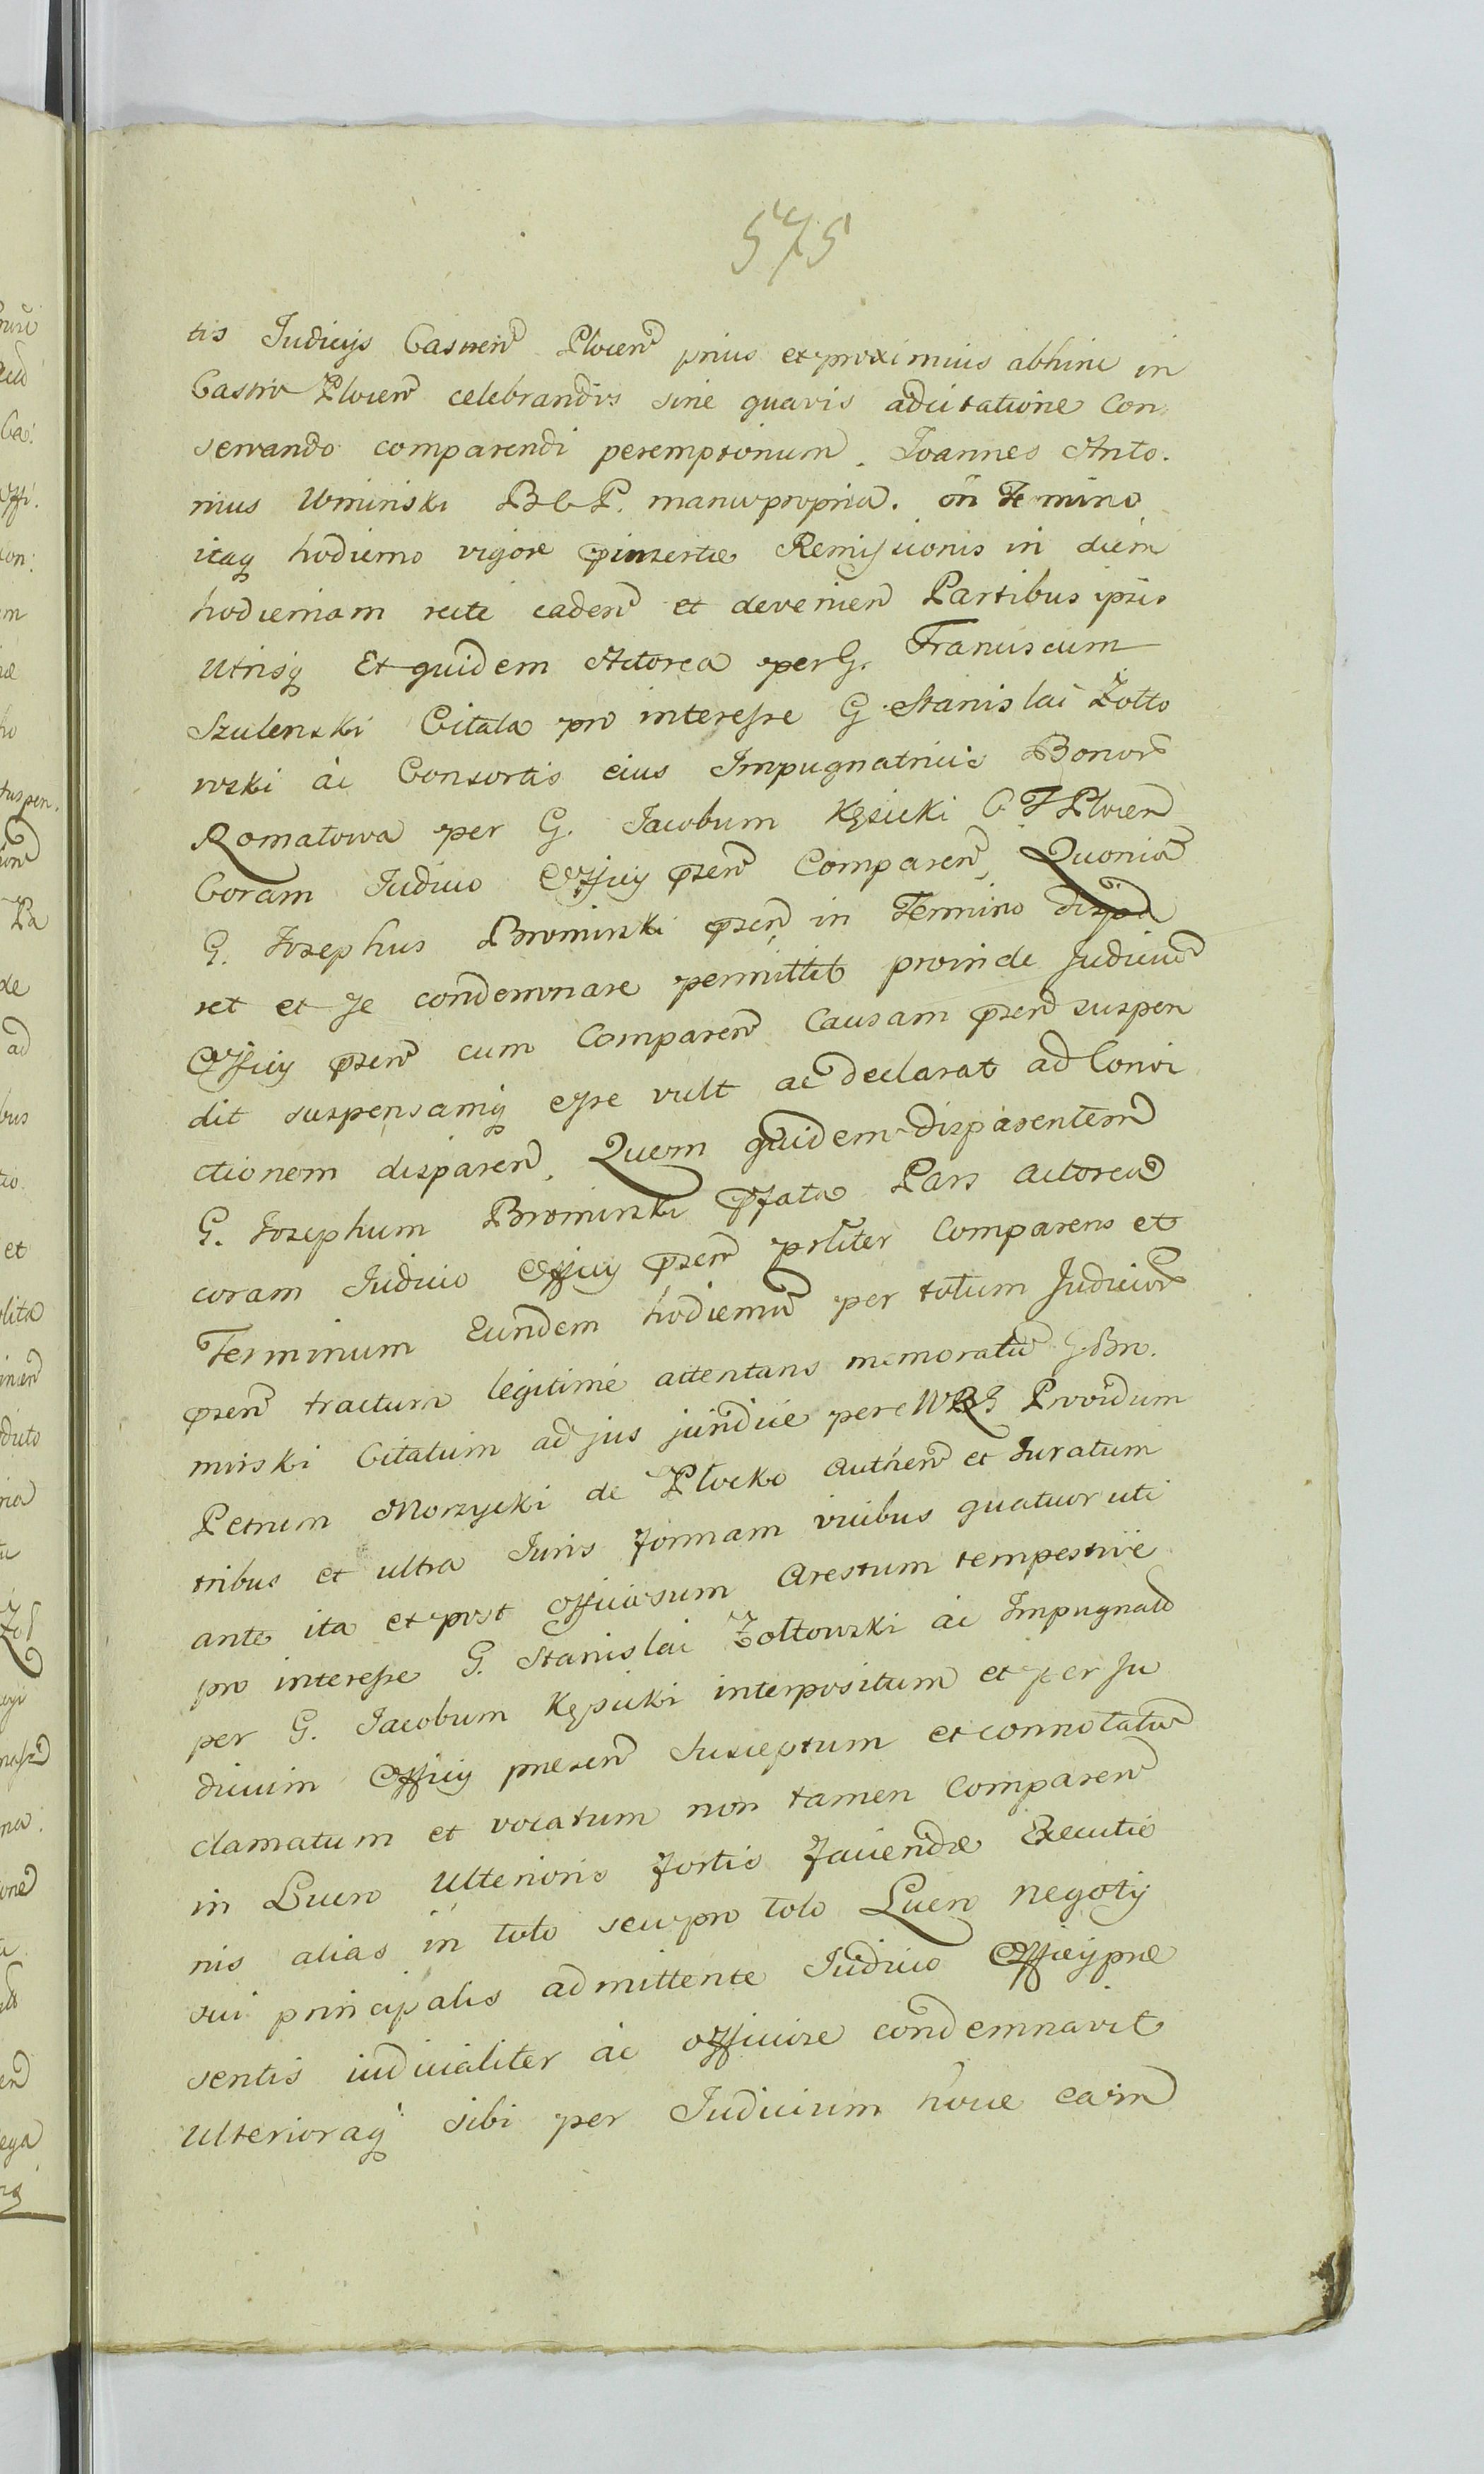 575
tis Judicijs Castren Plocen prius et proximius abhinc in
Castro Plocen celebrandis sine quavis adcitatione Con
servando comparendi peremptorium. Joannes Anto.
nius Uminski B G P. manu propria. in Termino
itaq hodierno vigore pinsertæ Remissionis in diem
hodiernam recte caden et devenien Partibus ipsis
Utrisq Et quidem Actorea per G. Franciscum
Szulenski Citata pro interesse G. Stanislai Zołto
wski ac Consortis eius Impugnatricis Bonor
Romatowa per G. Jacobum Kęsicki C T Plocen
Coram Judicio Officij psen Comparen, Quonia
G. Josephus Brominski psen in Termino dispa
ret et se condemnare permittit proinde Judicium
Officij psen cum Comparen Causam psen suspen
dit suspensamq esse vult ac declarat ad Convi
ctionem disparen. Quem quidem disparentem
G. Josephum Brominski pfata Pars actorea
coram Judicio Officij psen prliter Comparens et
Terminum Eundem hodiernu per totum Judicior
psen tractum legitimé attentans memoratu G. Bro.
minski Citatum ad jus juridice per MRG Providum
Petrum Morzycki de Płocko authen et Juratum
tribus et ultra Juris formam vicibus quatuor uti
ante ita et post officiosum Arestum tempestive
pro interesse G. Stanislai Zołtowski ac Impugnato
per G. Jacobum Kęsicki interpositum et per Ju
dicium Officij præsen Susceptum et connotatu
clamatum et vocatum non tamen Comparen
in Lucro Ulterioris fortis faciendæ Executio
nis alias in toto seu pro toto Lucro negotij
sui principalis admittente Judicio Officij præ
sentis iudicialiter ac officiose condemnavit
Ulterioraq sibi per Judicium hocce eam